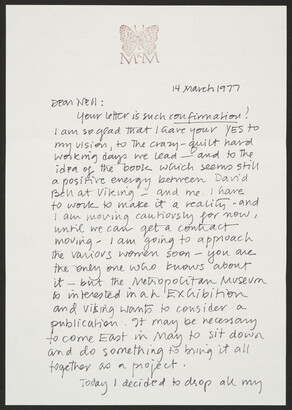 MCM
14 March 1977
Dear Nell:
Your letter is such confirmation!
I am so glad that I have your YES to
my vision, to the crazy-quilt hard
working days we lead — and to the
idea of the book which seems still
a positive energy between David
Bell at Viking — and me. I have
to work to make it a reality - and
I am moving cautiously for now,
until we can get a contract
moving. I am going to approach
the various women soon - you are
the only one who knows about
it — but the Metropolitan Museum
is interested in an EXHibition
and Viking wants to consider a
publication. It may be necessary
to come East in May to sit down
and do something to bring it all
together as a project.
Today I decided to drop all my